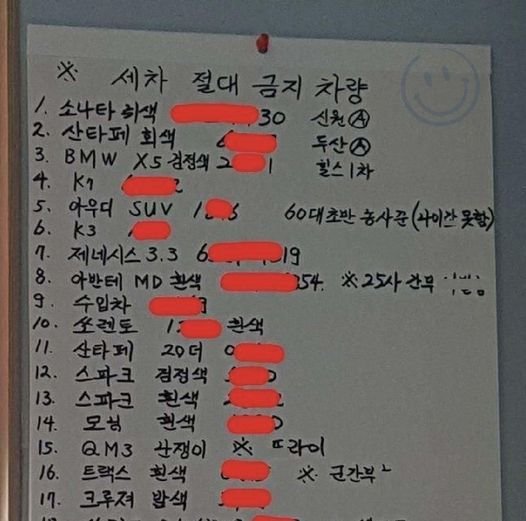 ※ 세차 절대 금지 차량
1. 소나타 회색 30 신원Ⓐ
2. 산타페 회색 두산Ⓐ
3. BMW X5 검정색 2 1 힐스1차
4. K7
5. 아우디 SUV 1 6 60대초반 농사꾼 (사이갼 못함)
6. K3
7. 제네시스 3.3 6 19
8. 아반테 MD 흰색 354. ※25사 간부
9. 수입차
10. 쏘렌토 1 흰색
11. 산타페 20더 0
12. 스파크 검정색
13. 스파크 흰색
14. 모닝 흰색
15. QM3 난쟁이 ※ 또라이
16. 트랙스 흰색 ※ 군간부
17. 크루져 밤색